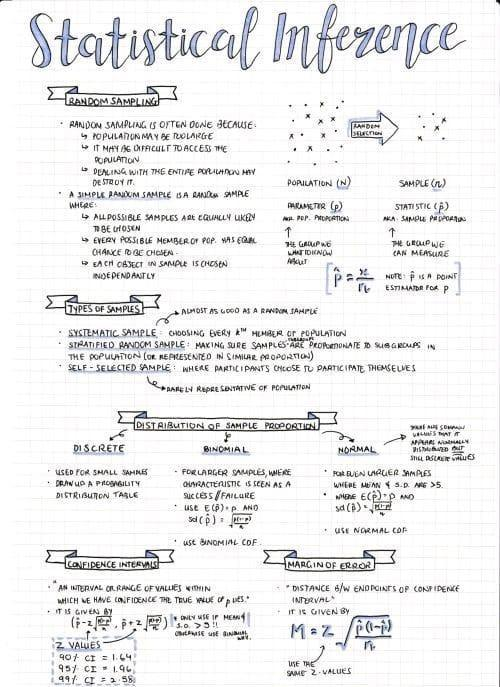 Statistical Inference
RANDOM SAMPLING
· RANDOM SAMPLING IS OFTEN DONE BECAUSE:
↳ POPULATION MAY BE TOO LARGE
↳ IT MAY BE DIFFICULT TO ACCESS THE
POPULATION
↳ DEALING WITH THE ENTIRE POPULATION MAY
DESTROY IT.
· A SIMPLE RANDOM SAMPLE IS A RANDOM SAMPLE
WHERE:
↳ ALL POSSIBLE SAMPLES ARE EQUALLY LIKELY
TO BE CHOSEN
↳ EVERY POSSIBLE MEMBER OF POP. HAS EQUAL
CHANCE TO BE CHOSEN.
↳ EACH OBJECT IN SAMPLE IS CHOSEN
INDEPENDANTLY
RANDOM
SELECTION
POPULATION (N)
PARAMETER (p)
AKA. POP. PROPORTION
↑
THE GROUP WE
WANT TO KNOW
ABOUT
SAMPLE (n)
STATISTIC (p̂)
AKA. SAMPLE PROPORTION
↑
THE GROUP WE
CAN MEASURE
[p̂ = x/n NOTE: p̂ IS A POINT
ESTIMATOR FOR p]
TYPES OF SAMPLES
→ ALMOST AS GOOD AS A RANDOM SAMPLE
· SYSTEMATIC SAMPLE: CHOOSING EVERY kTH MEMBER OF POPULATION
· STRATIFIED RANDOM SAMPLE: MAKING SURE SAMPLES ARE PROPORTIONATE TO SUBGROUPS IN
THE POPULATION (OR REPRESENTED IN SIMILAR PROPORTION)
· SELF-SELECTED SAMPLE: WHERE PARTICIPANTS CHOOSE TO PARTICIPATE THEMSELVES
→ RARELY REPRESENTATIVE OF POPULATION
DISTRIBUTION OF SAMPLE PROPORTION
DISCRETE
· USED FOR SMALL SAMPLES
· DRAW UP A PROBABILITY
DISTRIBUTION TABLE
BINOMIAL
· FOR LARGER SAMPLES, WHERE
CHARACTERISTIC IS SEEN AS A
SUCCESS/FAILURE
· USE E(p̂)=p AND
sd(p̂) = √(p(1-p)/n)
· USE BINOMIAL CDF.
NORMAL
→ THERE ARE SO MANY
VALUES THAT IT
APPEARS NORMALLY
DISTRIBUTED BUT
STILL DISCRETE VALUES
· FOR EVEN LARGER SAMPLES
WHERE MEAN & S.D. ARE >5.
· WHERE E(p̂)=p AND
sd(p̂)=√(p(1-p)/n)
· USE NORMAL CDF
CONFIDENCE INTERVALS
· "AN INTERVAL OR RANGE OF VALUES WITHIN
WHICH WE HAVE CONFIDENCE THE TRUE VALUE OF p LIES."
· IT IS GIVEN BY
(p̂-z√(p̂(1-p̂)/n), p̂+z√(p̂(1-p̂)/n))
* ONLY USE IF MEAN &
S.D. >5!!
OTHERWISE USE BINOMIAL
Z VALUES
90% CI = 1.64
95% CI = 1.96
99% CI = 2.58
MARGIN OF ERROR
· "DISTANCE B/W ENDPOINTS OF CONFIDENCE
INTERVAL"
· IT IS GIVEN BY
M = Z √(p̂(1-p̂)/n)
↑
USE THE
SAME Z-VALUES